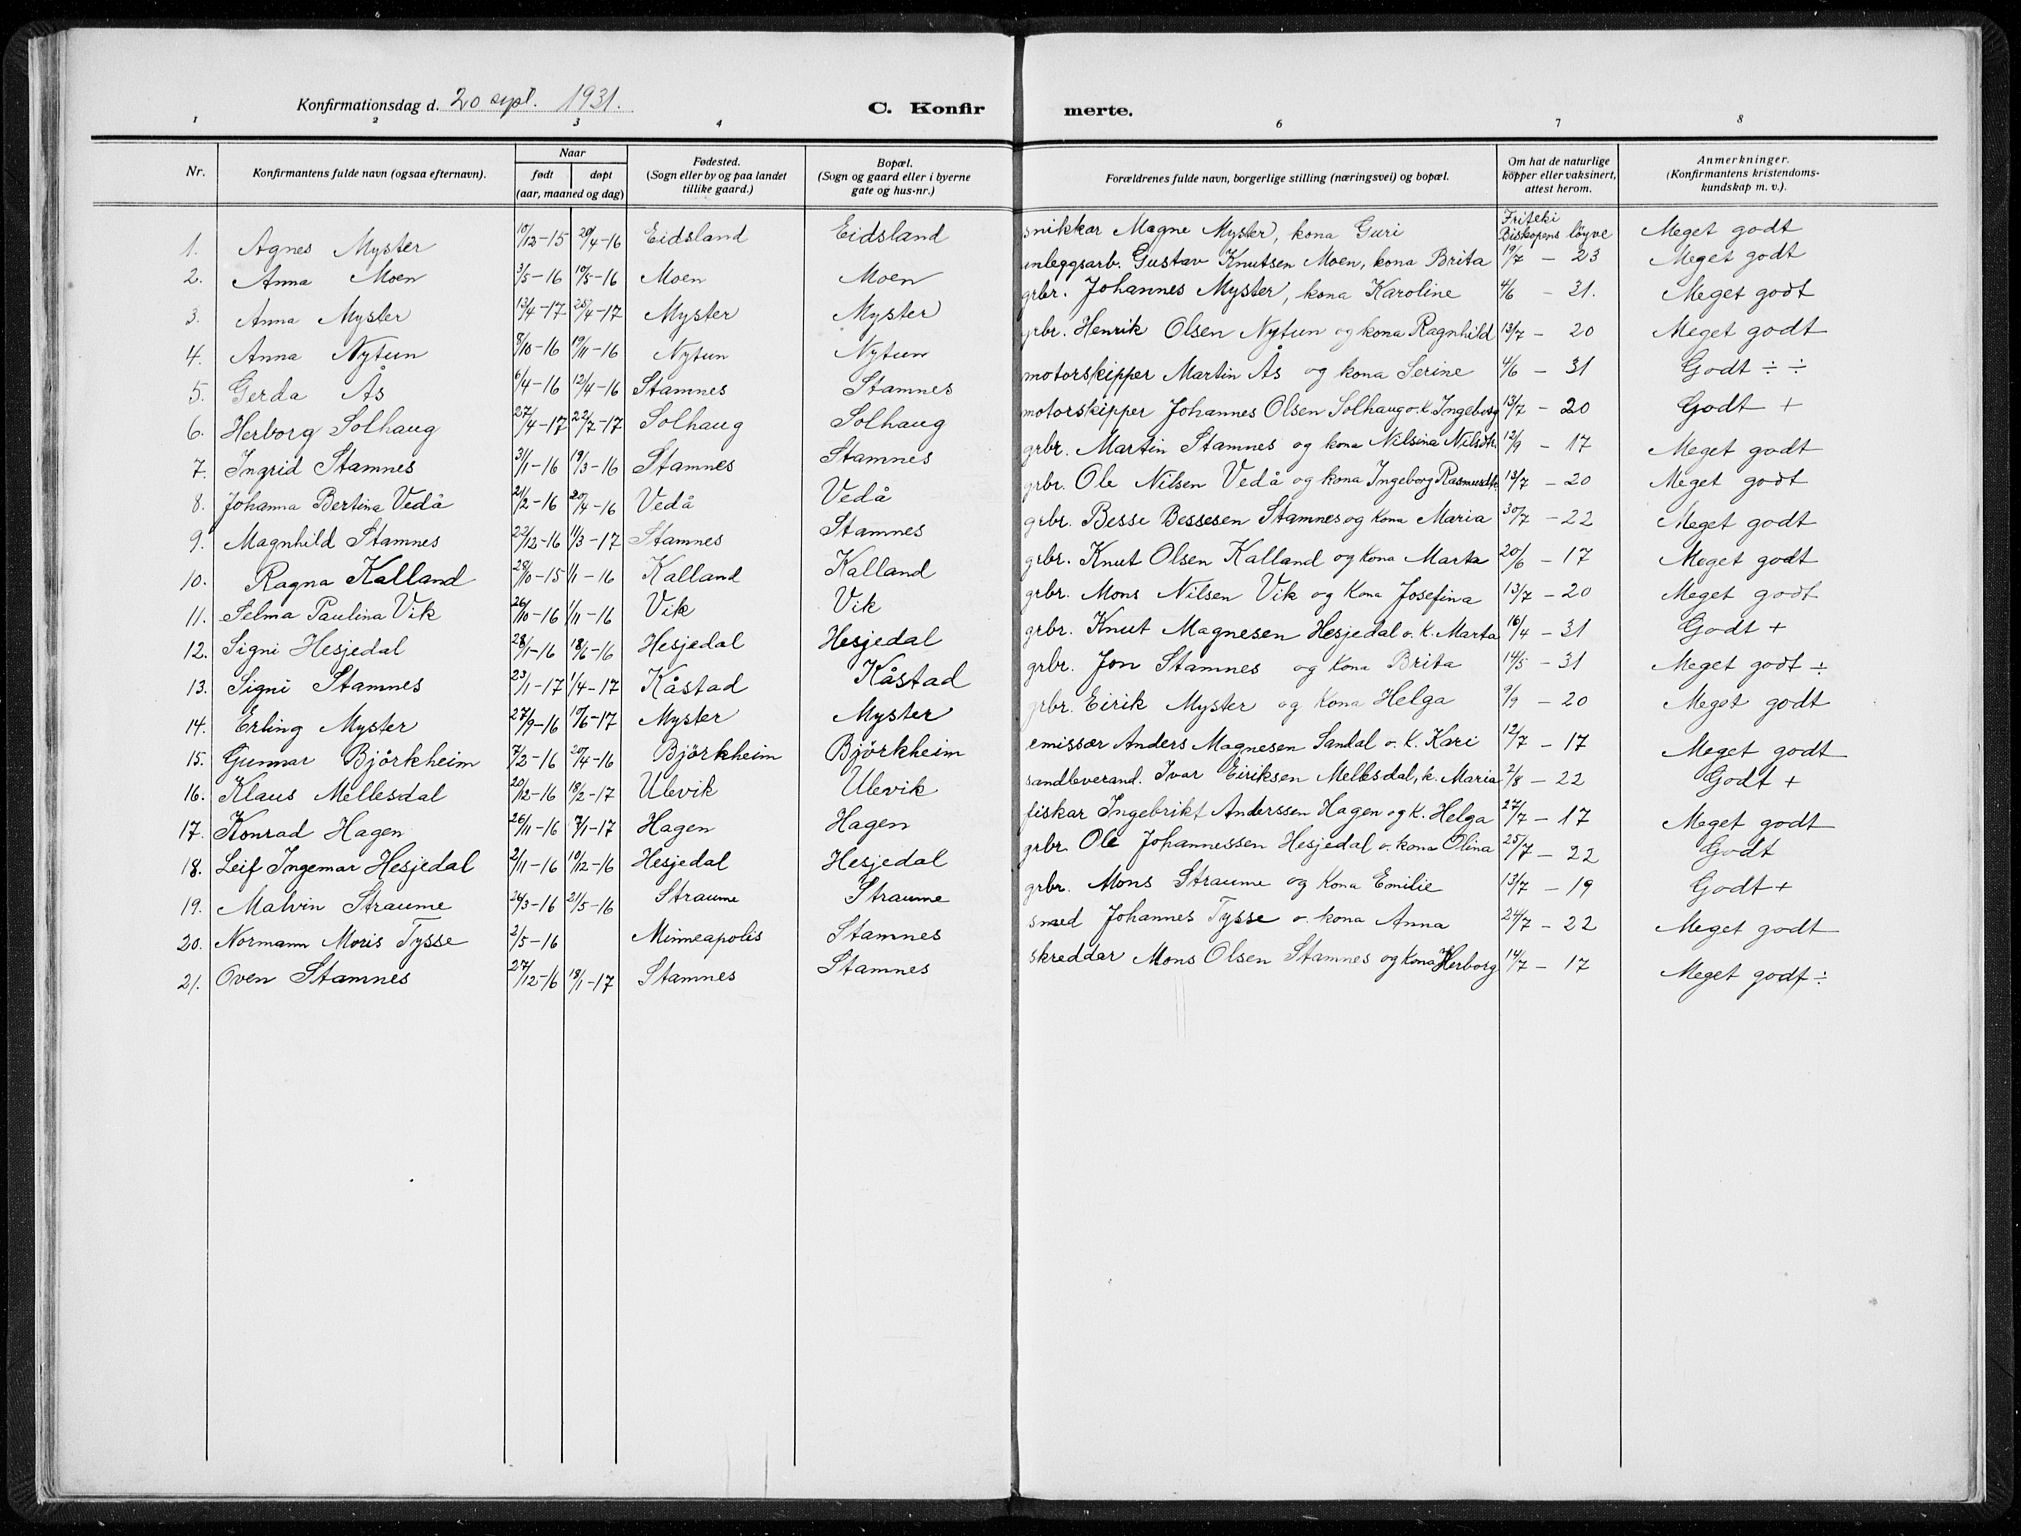 Konfirmationsdag d. 20 sept. 1931. C. Konfir merte.
1 2 3 4 6 7 8
Nr. Konfirmantens fulde navn (ogsaa efternavn). Naar født døpt (aar, maaned og dag) Fødested. (Sogn eller by og paa landet tillike gaard.) Bopæl. (Sogn og gaard eller i byerne gate og hus-nr.) Forældrenes fulde navn, borgerlige stilling (næringsvei) og bopæl. Om hat de naturlige kopper eller vaksinert, attest herom. Anmerkninger. (Konfirmantens kristendomskundskap m. v.).
1. Agnes Myster 10/12-15 20/4-16 Eidsland Eidsland snikkar Magne Myster, kona Guri Friteki Biskopens løyve Meget godt
2. Anna Moen 3/5-16 10/5-16 Moen Moen anleggsarb. Gustav Knutsen Moen, kona Brita 19/7 - 23 Meget godt
3. Anna Myster 13/4-17 25/4-17 Myster Myster grbr. Johannes Myster, kona Karoline 4/6 - 31. Meget godt
4. Anna Nytun 8/10-16 19/11-16 Nytun Nytun grbr. Henrik Olsen Nytun og kona Ragnhild 13/7 - 20 Meget godt
5. Gerda Ås 6/4-16 12/4-16 Stamnes Stamnes motorskipper Martin Ås og kona Serine 4/6 - 31 Godt ÷ ÷
6. Herborg Solhaug 27/4-17 22/7-17 Solhaug Solhaug motorskipper Johannes Olsen Solhaug o. k. Ingeborg 13/7 - 20 Godt +
7. Ingrid Stamnes 31/1-16 19/3-16 Stamnes Stamnes grbr. Martin Stamnes og kona Nilsina Nilsdt. 12/9 - 17 Meget godt
8. Johanna Bertina Vedå 21/2-16 20/4-16 Vedå Vedå grbr. Ole Nilsen Vedå og kona Ingeborg Rasmusdt. 13/7 - 20 Meget godt
9. Magnhild Stamnes 22/12-16 11/3-17 Stamnes Stamnes grbr. Besse Bessesen Stamnes og kona Maria 30/7 - 22 Meget godt
10. Ragna Kalland 28/10-15 1/1-16 Kalland Kalland grbr. Knut Olsen Kalland og kona Marta 20/6 - 17 Meget godt
11. Selma Paulina Vik 26/10-16 1/11-16 Vik Vik grbr. Mons Nilsen Vik og kona Josefina 13/7 - 20 Meget godt
12. Signi Hesjedal 28/1-16 18/6-16 Hesjedal Hesjedal grbr. Knut Magnesen Hesjedal o. k. Marta 16/4 - 31 Godt +
13. Signi Stamnes 23/1-17 1/4-17 Kåstad Kåstad grbr. Jon Stamnes og kona Brita 14/5 - 31 Meget godt ÷
14. Erling Myster 27/9-16 10/6-17 Myster Myster grbr. Eirik Myster og kona Helga 9/9 - 20 Meget godt
15. Gunnar Björkheim 7/2-16 20/4-16 Björkheim Björkheim emissær Anders Magnesen Sandal o. k. Kari 12/7 - 17 Meget godt
16. Klaus Mellesdal 20/12-16 18/2-17 Ulevik Ulevik sandleverand. Ivar Eiriksen Mellesdal, k. Maria 2/8 - 22 Godt +
17. Konrad Hagen 26/11-16 7/1-17 Hagen Hagen fiskar Ingebrikt Anderssen Hagen og k. Helga 27/7 - 17 Meget godt
18. Leif Ingemar Hesjedal 2/11-16 10/12-16 Hesjedal Hesjedal grbr. Ole Johannessen Hesjedal o. kona Olina 25/7 - 22 Godt
19. Malvin Straume 24/3-16 21/5-16 Straume Straume grbr. Mons Straume og kona Emilie 13/7 - 19 Godt +
20. Normann Moris Tysse 2/5-16 Minneapolis Stamnes smed Johannes Tysse o. kona Anna 24/7 - 22 Meget godt
21. Oven Stamnes 27/12-16 18/1-17 Stamnes Stamnes skreddar Mons Olsen Stamnes og kona Herborg 14/7 - 17 Meget godt ÷